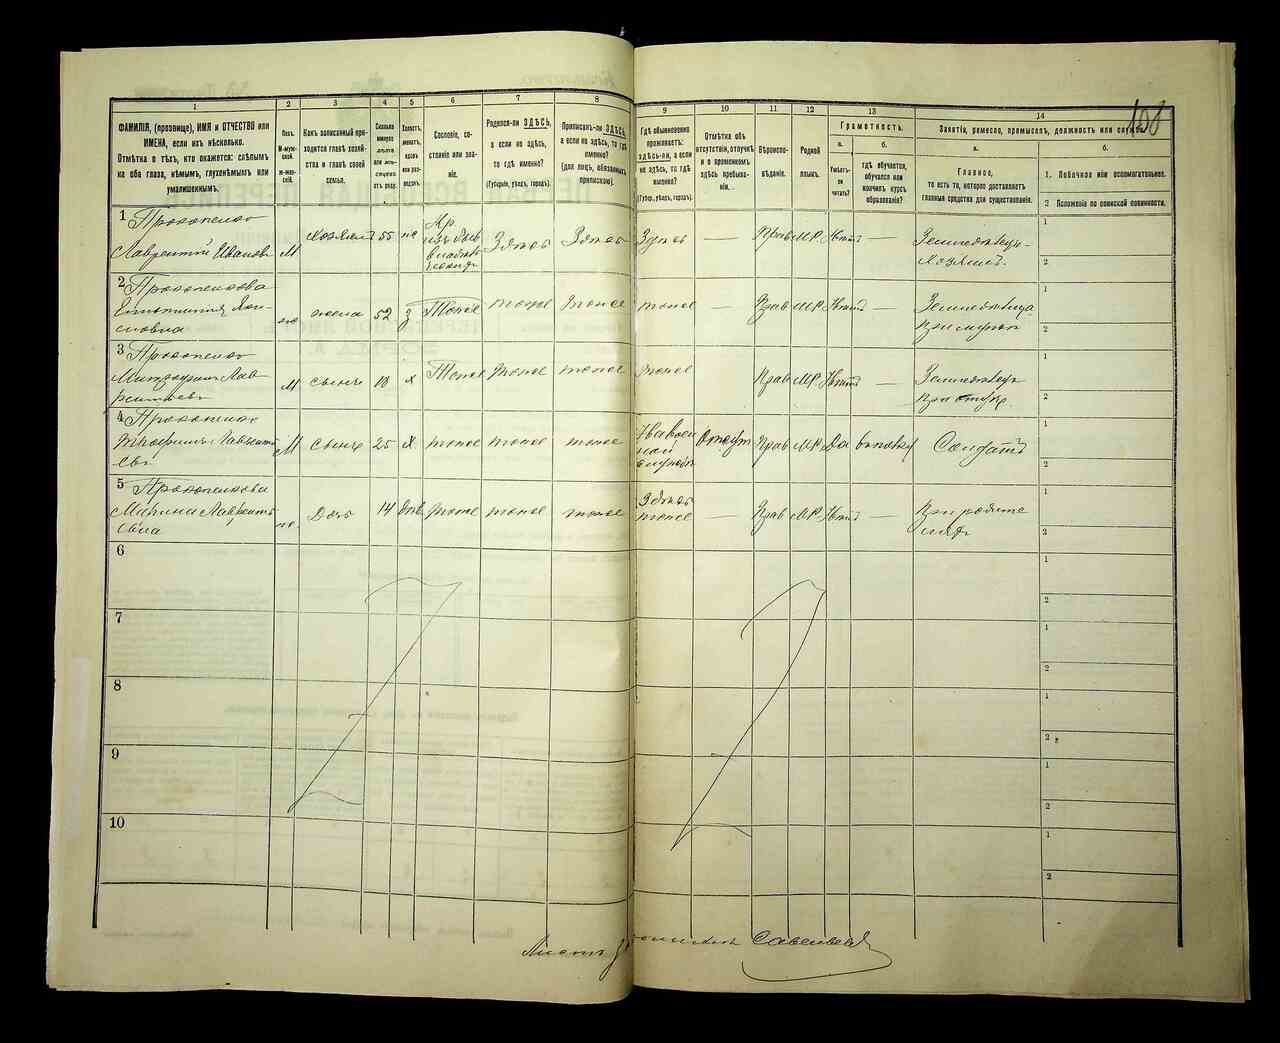 108
1
2
3
4
5
6
7
8
9
10
11
12
13
14
ФАМИЛІЯ, (прозвище), ИМЯ и ОТЧЕСТВО или
ИМЕНА, если ихъ нѣсколько.
Отмѣтка о тѣхъ, кто окажется: слѣпымъ
на оба глаза, нѣмымъ, глухонѣмымъ или
умалишеннымъ.
Полъ.
М-мужской.
Ж-женскій.
Какъ записанный приходится
главѣ хозяйства
и главѣ своей
семьи.
Сколько
минуло
лѣтъ
или мѣсяцевъ
отъ роду.
Холостъ,
женатъ,
вдовъ
или разведенъ.
Сословіе, состояніе
или званіе.
Родился-ли ЗДѢСЬ,
а если не здѣсь,
то гдѣ именно?
(Губернія, уѣздъ, городъ).
Приписанъ-ли ЗДѢСЬ,
а если не здѣсь, то гдѣ
именно?
(для лицъ, обязанныхъ
припискою).
Гдѣ обыкновенно
проживаетъ:
здѣсь-ли, а если
не здѣсь, то гдѣ
именно?
(Губерн., уѣздъ, городъ).
Отмѣтка объ
отсутствіи, отлучкѣ
и о временномъ
здѣсь пребываніи.
Вѣроисповѣданіе.
Родной
языкъ.
Грамотность.
а.
б.
Умѣетъ-ли
читать?
гдѣ обучается,
обучался или
кончилъ курсъ
образованія?
Занятіе, ремесло, промыселъ, должность или служба.
а.
б.
Главное,
то есть то, которое доставляетъ
главныя средства для существованія.
1. Побочное или вспомогательное.
2 Положеніе по воинской повинности.
1 Прокопенко
Лаврентій Иванов
М
Хозяинъ
55
Здѣсь
Здѣсь
Здѣсь
—
Прав
МР
Нѣтъ
—
Земледѣлецъ-
Хозяинъ
1
2
2 Прокопенкова
жена
52
Тоже
тоже
тоже
тоже
—
Прав
МР
Нѣтъ
—
При мужѣ
1
2
3 Прокопенко
Митрофанъ Лаврентьевъ
М
сынъ
18
х
Тоже
тоже
тоже
тоже
Прав
МР
Нѣтъ
—
Земледѣлецъ
При отцѣ
1
2
4 Прокопенко
Трофимъ Лаврентьевъ
М
сынъ
25
Х
тоже
тоже
тоже
На военной
службѣ
Отсут
Прав
МР
Да
въ полку
Солдатъ
1
2
5 Прокопенкова
Марина Лаврентьевна
Дочь
14
тоже
тоже
тоже
Здѣсь
тоже
—
Прав
МР
Нѣтъ
—
При родителяхъ
1
2
6
1
2
7
1
2
8
1
2
9
1
2
10
1
2